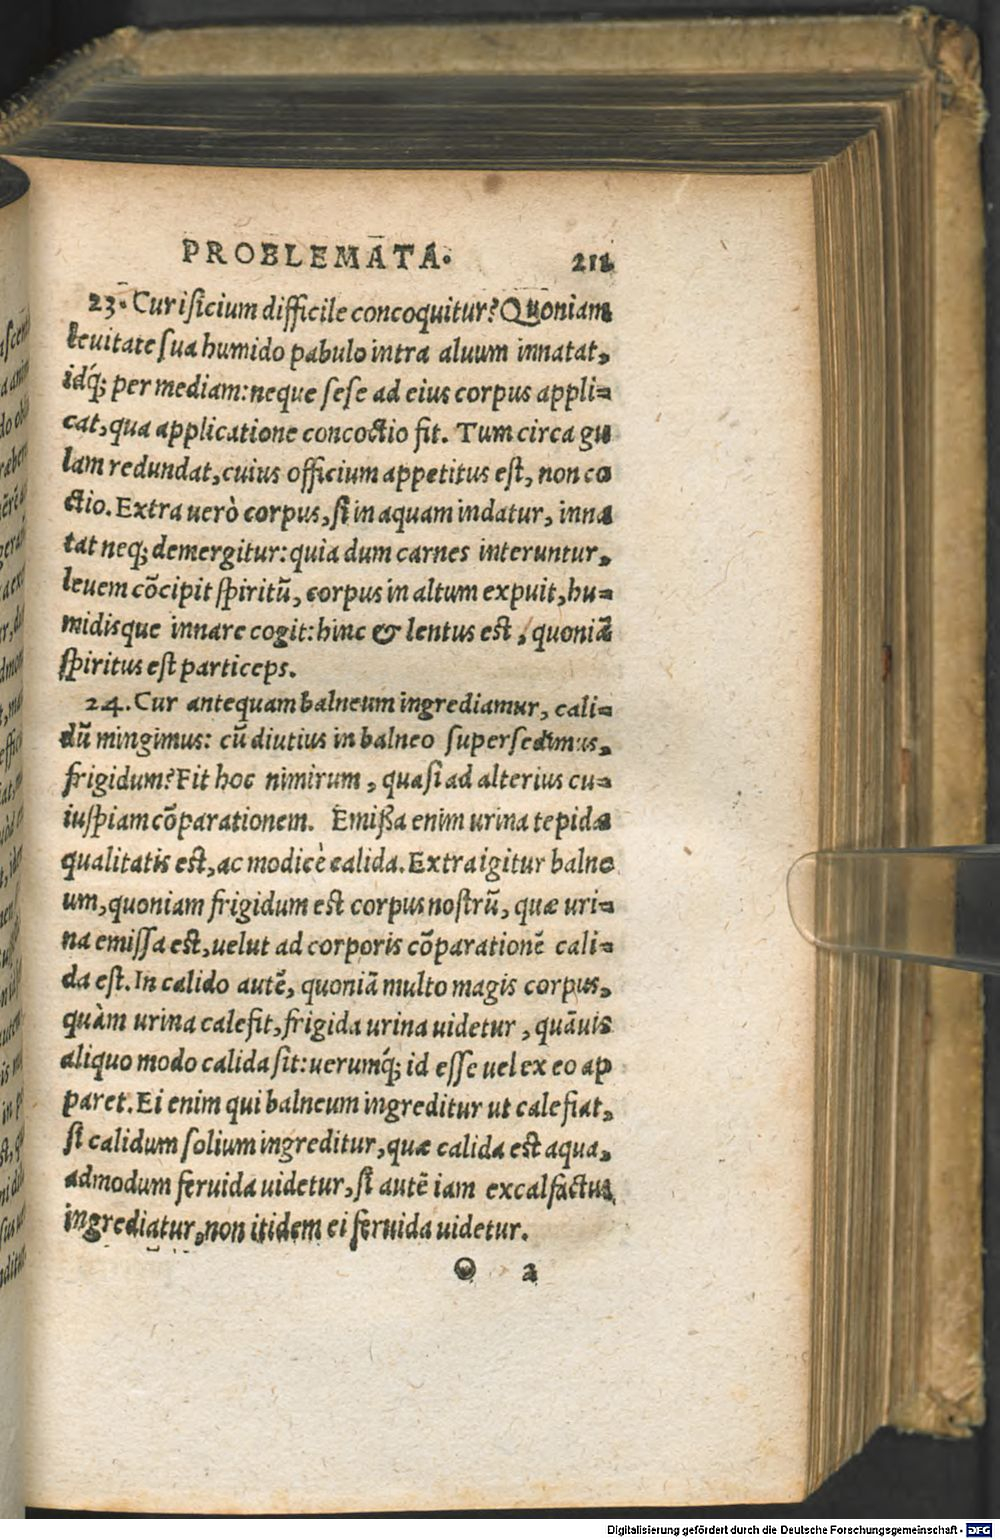 PROBLEMATA. 211
23. Cur isicium difficile concoquitur? Quoniam
leuitate sua humido pabulo intra aluum innatat,
idq́; per mediam: neque sese ad eius corpus appli-
cat, qua applicatione concoctio fit. Tum circa gu
lam redundat, cuius officium appetitus est, non co
ctio. Extra uerò corpus, si in aquam indatur, inna
tat neq; demergitur: quia dum carnes interuntur,
leuem cōcipit spiritū, corpus in altum expuit, hu-
midisque innare cogit: hinc & lentus est, quoniā
spiritus est particeps.
24. Cur antequam balneum ingrediamur, cali-
dū mingimus: cū diutius in balneo supersedimus,
frigidum? Fit hoc nimirum, quasi ad alterius cu-
iuspiam cōparationem. Emißa enim urina tepidæ
qualitatis est, ac modicè calida. Extra igitur balne
um, quoniam frigidum est corpus nostrū, quæ uri-
na emissa est, uelut ad corporis cōparationē cali-
da est. In calido autē, quoniā multo magis corpus,
quàm urina calefit, frigida urina uidetur, quāuis
aliquo modo calida sit: uerumq́; id esse uel ex eo ap
paret. Ei enim qui balneum ingreditur ut calefiat,
si calidum solium ingreditur, quæ calida est aqua,
admodum feruida uidetur, si autē iam excalfactus
ingrediatur, non itidem ei feruida uidetur.
2
Digitalisierung gefördert durch die Deutsche Forschungsgemeinschaft - DFG